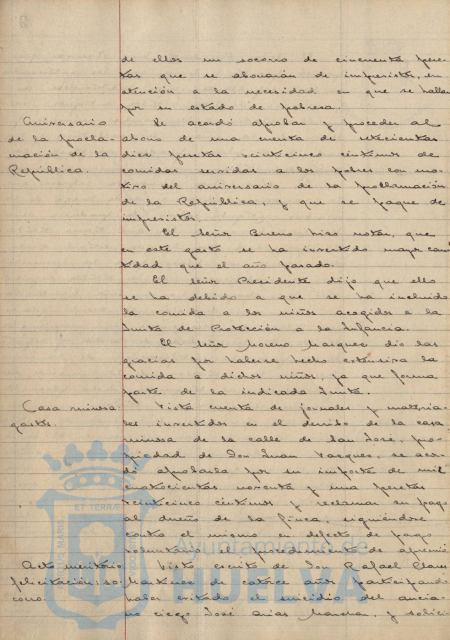 de ellos un socorro de cincuenta pese-
tas que se abonarán de imprevistos, en
atención a la necesidad en que se hallan
por su estado de pobresa.
Aniversario
de la procla-
mación de la
República.
Se acordó aprobar y proceder al
abono de una cuenta de setecientas
diez pesetas veinticinco céntimos de
comidas servidas a los pobres con mo-
tivo del aniversario de la proclamación
de la República, y que se pague de
imprevistos.
El Señor Bueno hizo notar, que
en este gasto se ha invertido mayor can-
tidad que el año pasado.
El Señor Presidente dijo que ello
se ha debido a que se ha incluido
la comida a los niños acogidos a la
Junta de Protección a la Infancia.
El Señor Moreno Marquez dio las
gracias por haberse hecho extensiva la
comida a dichos niños, ya que forma
parte de la indicada Junta.
Casa ruinosa
gastos.
Vista cuenta de jornales y materia-
les invertidos en el derribo de la casa
ruinosa de la calle de San José, pro-
piedad de Don Juan Vasques, se acor-
dó aprobarla por su importe de mil
cuatrocientas noventa y una pesetas
veinticinco céntimos y reclamar su pago
al dueño de la finca, siguiéndose
contra el mismo en defecto de pago
voluntario el procedimiento de apremio
Acto meritorio
felicitación y so-
corro
Visto escrito de Don Rafael
Martinez de catorce años participando
haber evitado el suicidio del ancia-
no ciego José Arias, y solici-
Ayuntamiento de
HUELVA